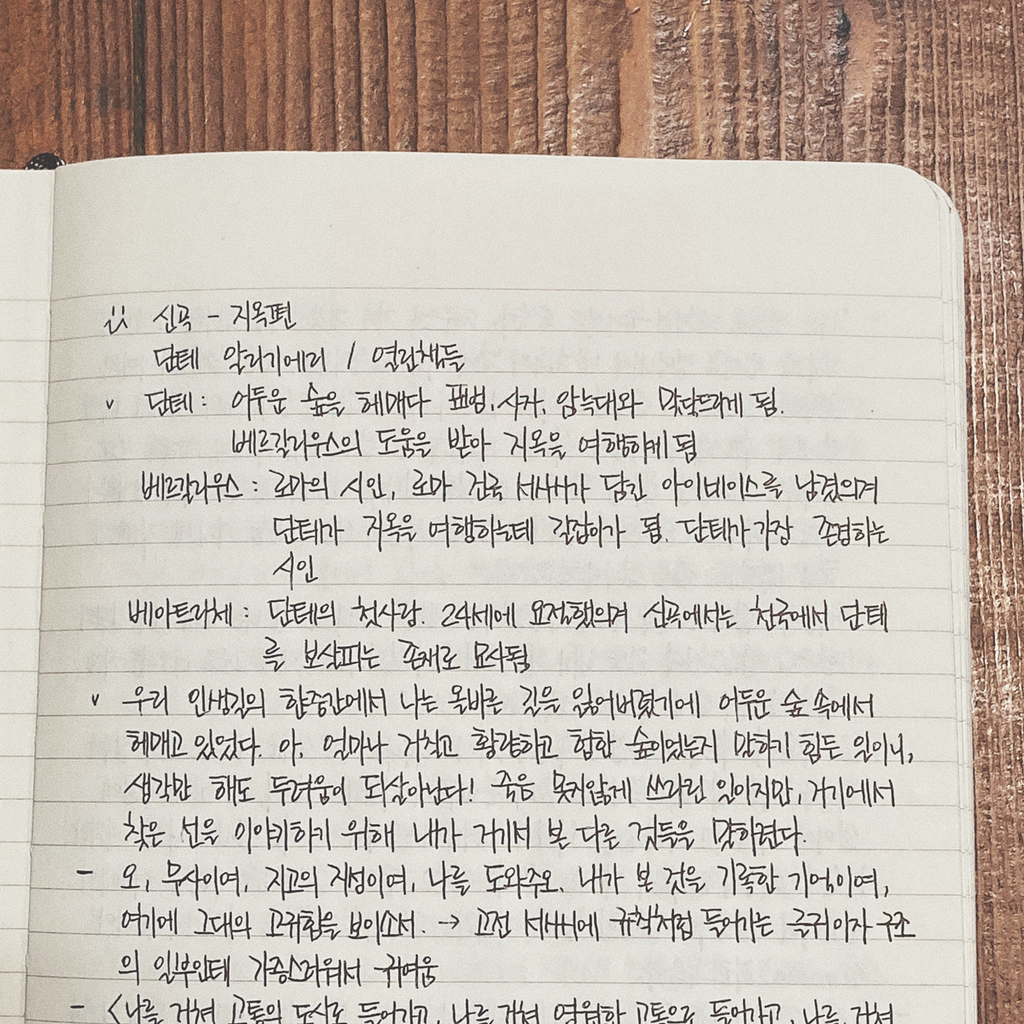 신곡 - 지옥편
단테 알리기에리 / 열린책들
v 단테 : 어두운 숲을 헤매다 표범, 사자, 암늑대와 맞닥뜨리게 됨.
베르길리우스의 도움을 받아 지옥을 여행하게 됨
베르길리우스 : 로마의 시인, 로마 건국 서사시가 담긴 아이네이스를 남겼으며
단테가 지옥을 여행하는데 길잡이가 됨. 단테가 가장 존경하는
시인
베아트리체 : 단테의 첫사랑. 24세에 요절했으며 신곡에서는 천국에서 단테
를 보살피는 존재로 묘사됨
v 우리 인생길의 한중간에서 나는 올바른 길을 잃어버렸기에 어두운 숲 속에서
헤매고 있었다. 아, 얼마나 거칠고 황량하고 험한 숲이었는지 말하기 힘든 일이니,
생각만 해도 두려움이 되살아난다! 죽음 못지않게 쓰라린 일이지만, 거기에서
찾은 선을 이야기하기 위해 내가 거기서 본 다른 것들을 말하련다.
- 오, 무사이여, 지고의 지성이여, 나를 도와주오. 내가 본 것을 기록한 기억이여,
여기에 그대의 고귀함을 보이소서. → 고전 서사시에 규칙처럼 들어가는 글귀이자 구조
의 일부인데 가증스러워서 귀여움
- <나를 거쳐 고통의 도시로 들어가고, 나를 거쳐 영원한 고통으로 들어가고, 나를 거쳐